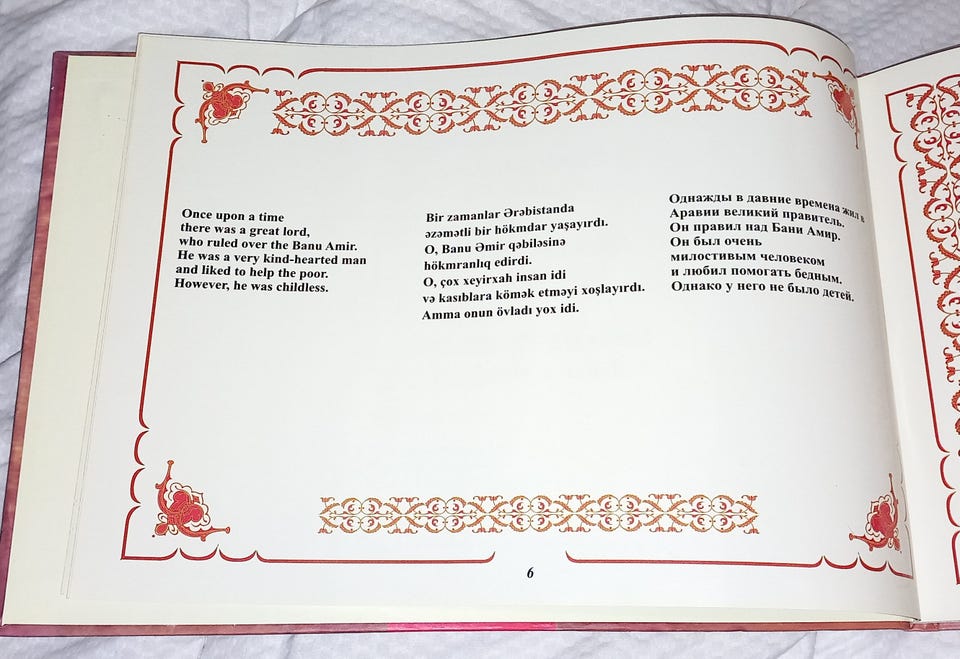 Once upon a time
there was a great lord,
who ruled over the Banu Amir.
He was a very kind-hearted man
and liked to help the poor.
However, he was childless.
Bir zamanlar Ərəbistanda
əzəmətli bir hökmdar yaşayırdı.
O, Banu Əmir qəbiləsinə
hökmranlıq edirdi.
O, çox xeyirxah insan idi
və kasıblara kömək etməyi xoşlayırdı.
Amma onun övladı yox idi.
Однажды в давние времена жил в
Аравии великий правитель.
Он правил над Бани Амир.
Он был очень
милостивым человеком
и любил помогать бедным.
Однако у него не было детей.
6